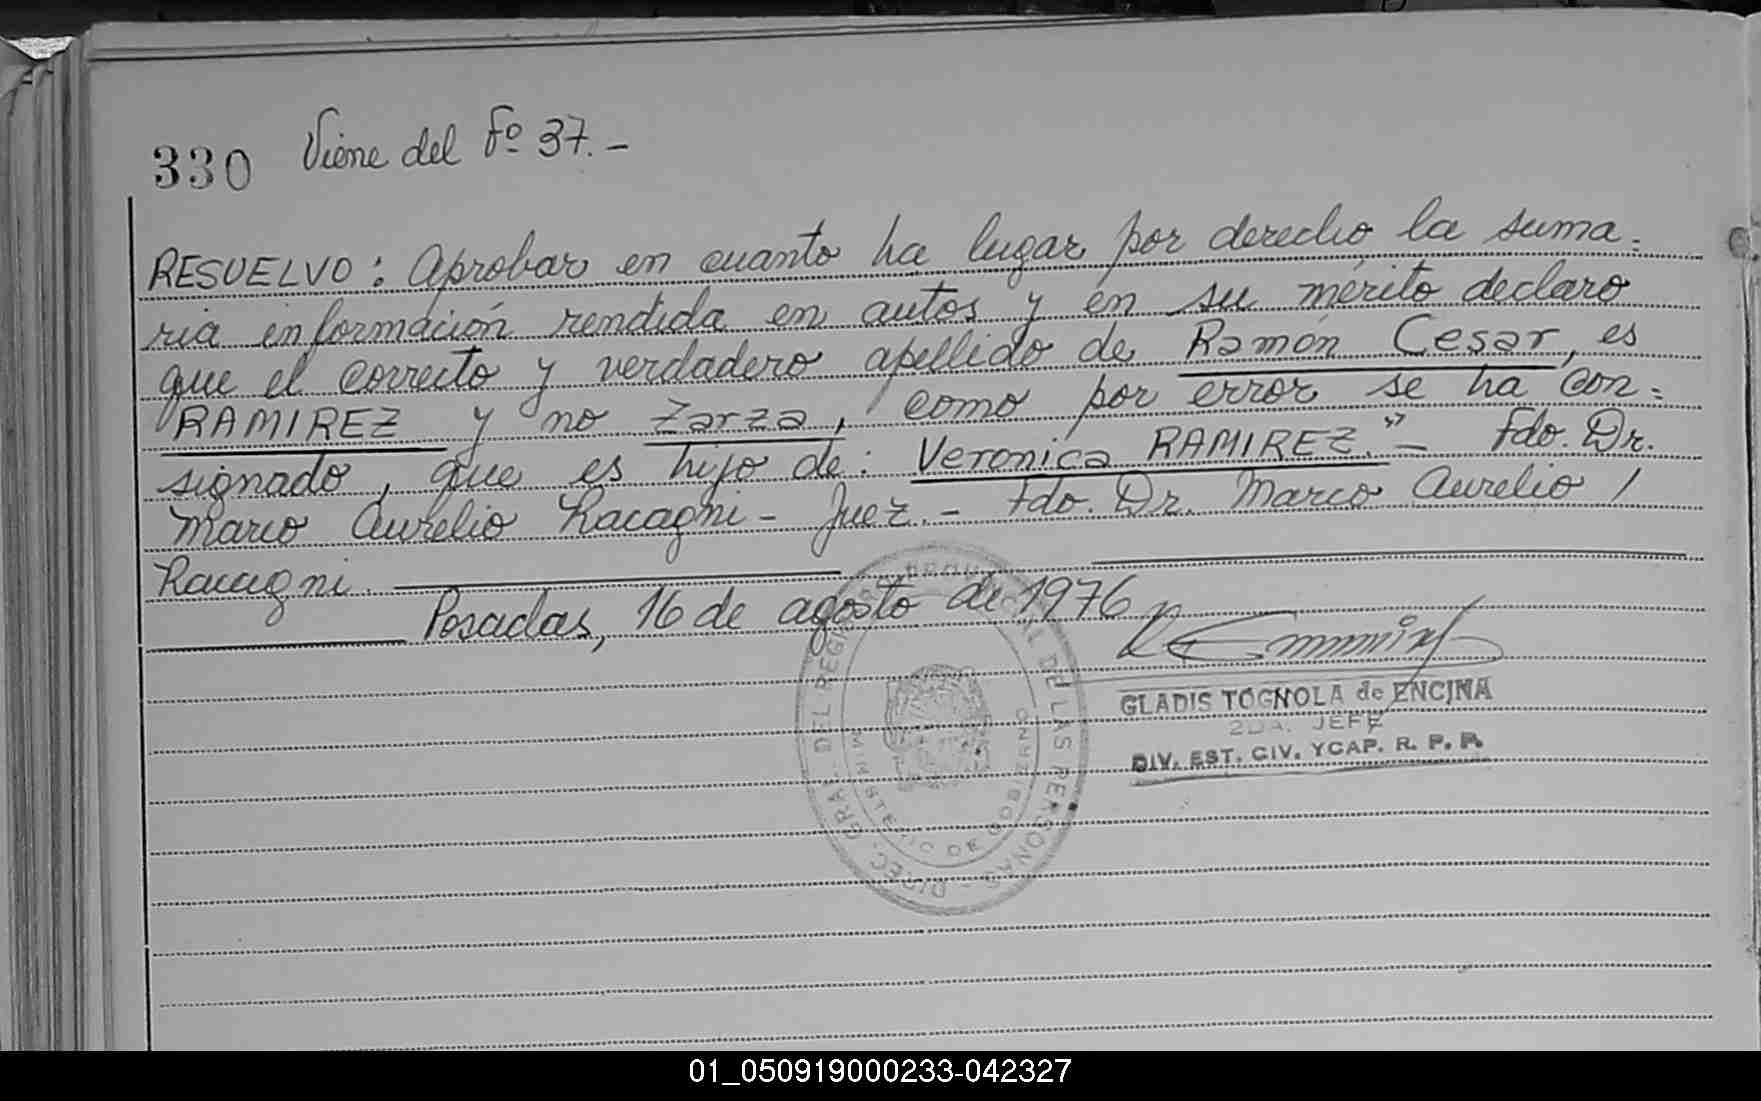 330 Viene del Fº 37.-
RESUELVO: Aprobar en cuanto ha lugar por derecho la suma=
ria información rendida en autos y en su mérito declaro
que el correcto y verdadero apellido de Ramón Cesar, es
RAMIREZ y no Zarza, como por error se ha con=
signado, que es hijo de: Veronica RAMIREZ."- Fdo. Dr.
Marco Aurelio Racagni - Juez.- Fdo. Dr. Marco Aurelio /
Racagni.
Posadas, 16 de agosto de 1976
GLADIS TOGNOLA de ENCINA
2DA. JEFE
DIV. EST. CIV. YCAP. R. P. P.
DIREC. GRAL. DEL REGISTRO PROVINCIAL DE LAS PERSONAS -
MINISTERIO DE GOBIERNO
01_050919000233-042327